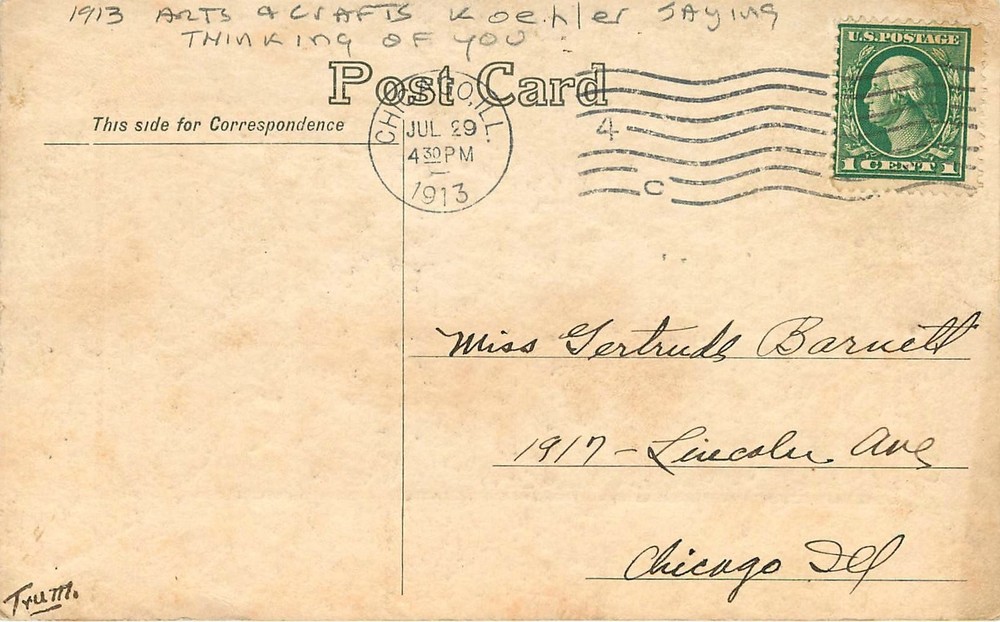 1913 ARTS & CRAFTS Koehler SAYING
THINKING OF YOU
Post Card
This side for Correspondence
CHICAGO, ILL.
JUL 29
4 30 PM
1913
4
C
U.S. POSTAGE
1 CENT 1
Miss Gertrude Barnett
1917 - Lincoln Ave
Chicago Ill